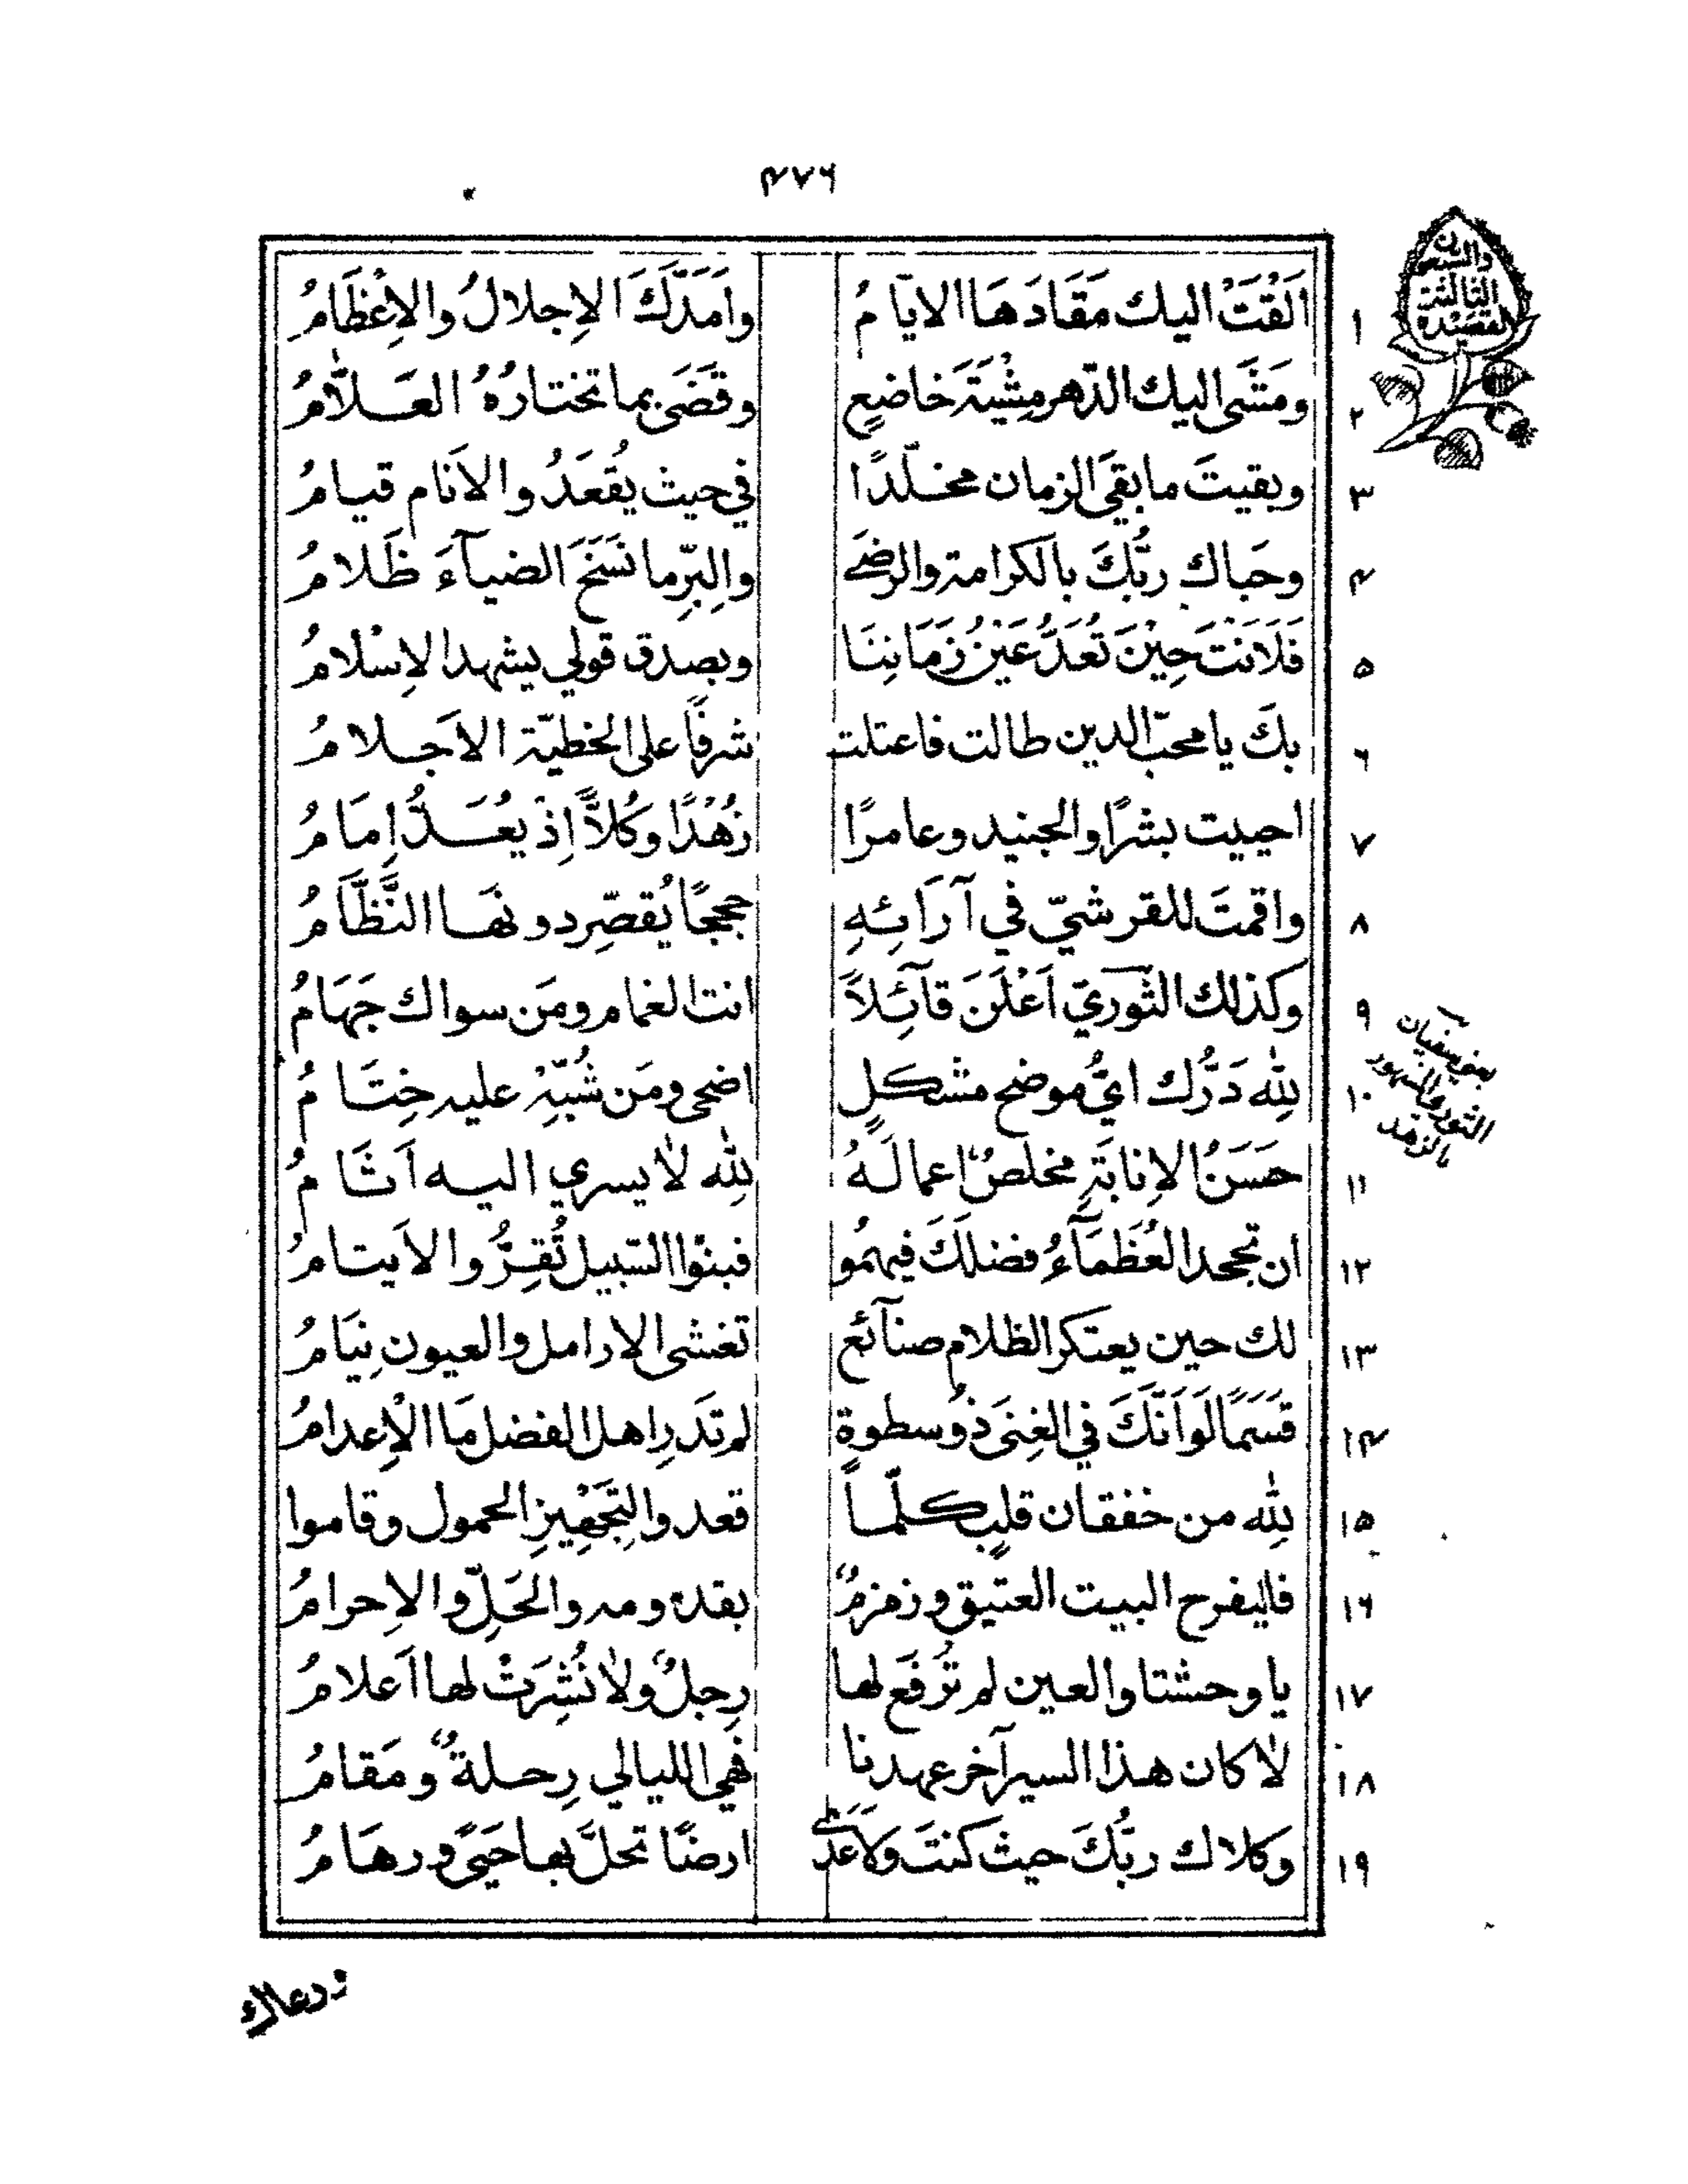 ٤٧٦
القصيدة
الثالثة
والسبعون
١ اَلقْتَْ اليك مَقَادَهَا الايّامُ وَاَمَدَّكَ الاِجلالُ والاِعْظَامُ
٢ ومَشَى اليك الدّهر مِشْيَةَ خاضعٍ وقَضَى بما تختارُهُ العَلاّمُ
٣ وبقيتَ ما بقيَ الزمان مخلّدًا في حيث يُقعَدُ والاَنام قيامُ
٤ وحَباك ربُّكَ بالكرامة والرضَى والبِرِّ ما نَسَخَ الضيآءَ ظَلامُ
٥ فَلَاَنْتَ حِيْنَ تُعَدُّ عَيْنُ زَمَانِنَا وبصدق قولي يشهد الاِسْلامُ
٦ بكَ يا محبّ الدين طالت فاعتلت شرفًا على الخطيّة الاَجلامُ
٧ احييت بشرًا والجنيد وعامرًا زُهْدًا وكُلاًّ اِذْ يُعَدُّ اِمَامُ
٨ واقمتَ للقرشيّ في آرَائِهِ حججًا يُقصِّر دونهَا النَّظَّامُ
٩ وكذلك الثَّوريّ اَعْلَنَ قآئِلاً انت الغمام ومَن سواك جَهَامُ
يعني سفيان
الثوري المشهور
بالزهد
١٠ لِلّٰه دَرُّك ايُّ موضح مشكلٍ اضحى ومَن شُبَهٌ عليه خِتَامُ
١١ حَسَنُ الاِنابَةِ مخلصٌ اعمالَهُ لِلّٰه لا يسري اليه اَثَامُ
١٢ ان تجحد العُظَمَآءُ فضلَكَ فيهمُو فبنو السّبيل تُقِرُّ والاَيتامُ
١٣ لك حين يعتكر الظلام صنآئع تغشى الارامل والعيون نِيَامُ
١٤ قَسَمًا لَوَ اَنَّكَ في الغِنَى ذُو سطوة لم تَدرِ اهل الفضل مَا الْاِعدامُ
١٥ لِلّٰه من خفقان قلبٍ كلّما قعدوا لِتَجْهِيزِ الحمول وقاموا
١٦ فاليفرح البيت العتيق وزمزمٌ بقدومه والحَلِّ والاِحرامُ
١٧ يا وحشتا والعين لم تُرفَع لها رِجلٌ ولا نُشِرَتْ لها اَعلامُ
١٨ لا كان هذا السير آخر عهدنا فهي الليالي رِحلةٌ ومَقامُ
١٩ وكلاك ربُّكَ حيث كنتَ ولاَعَدَى ارضًا تحلّ بها حَيىً ورهَامُ